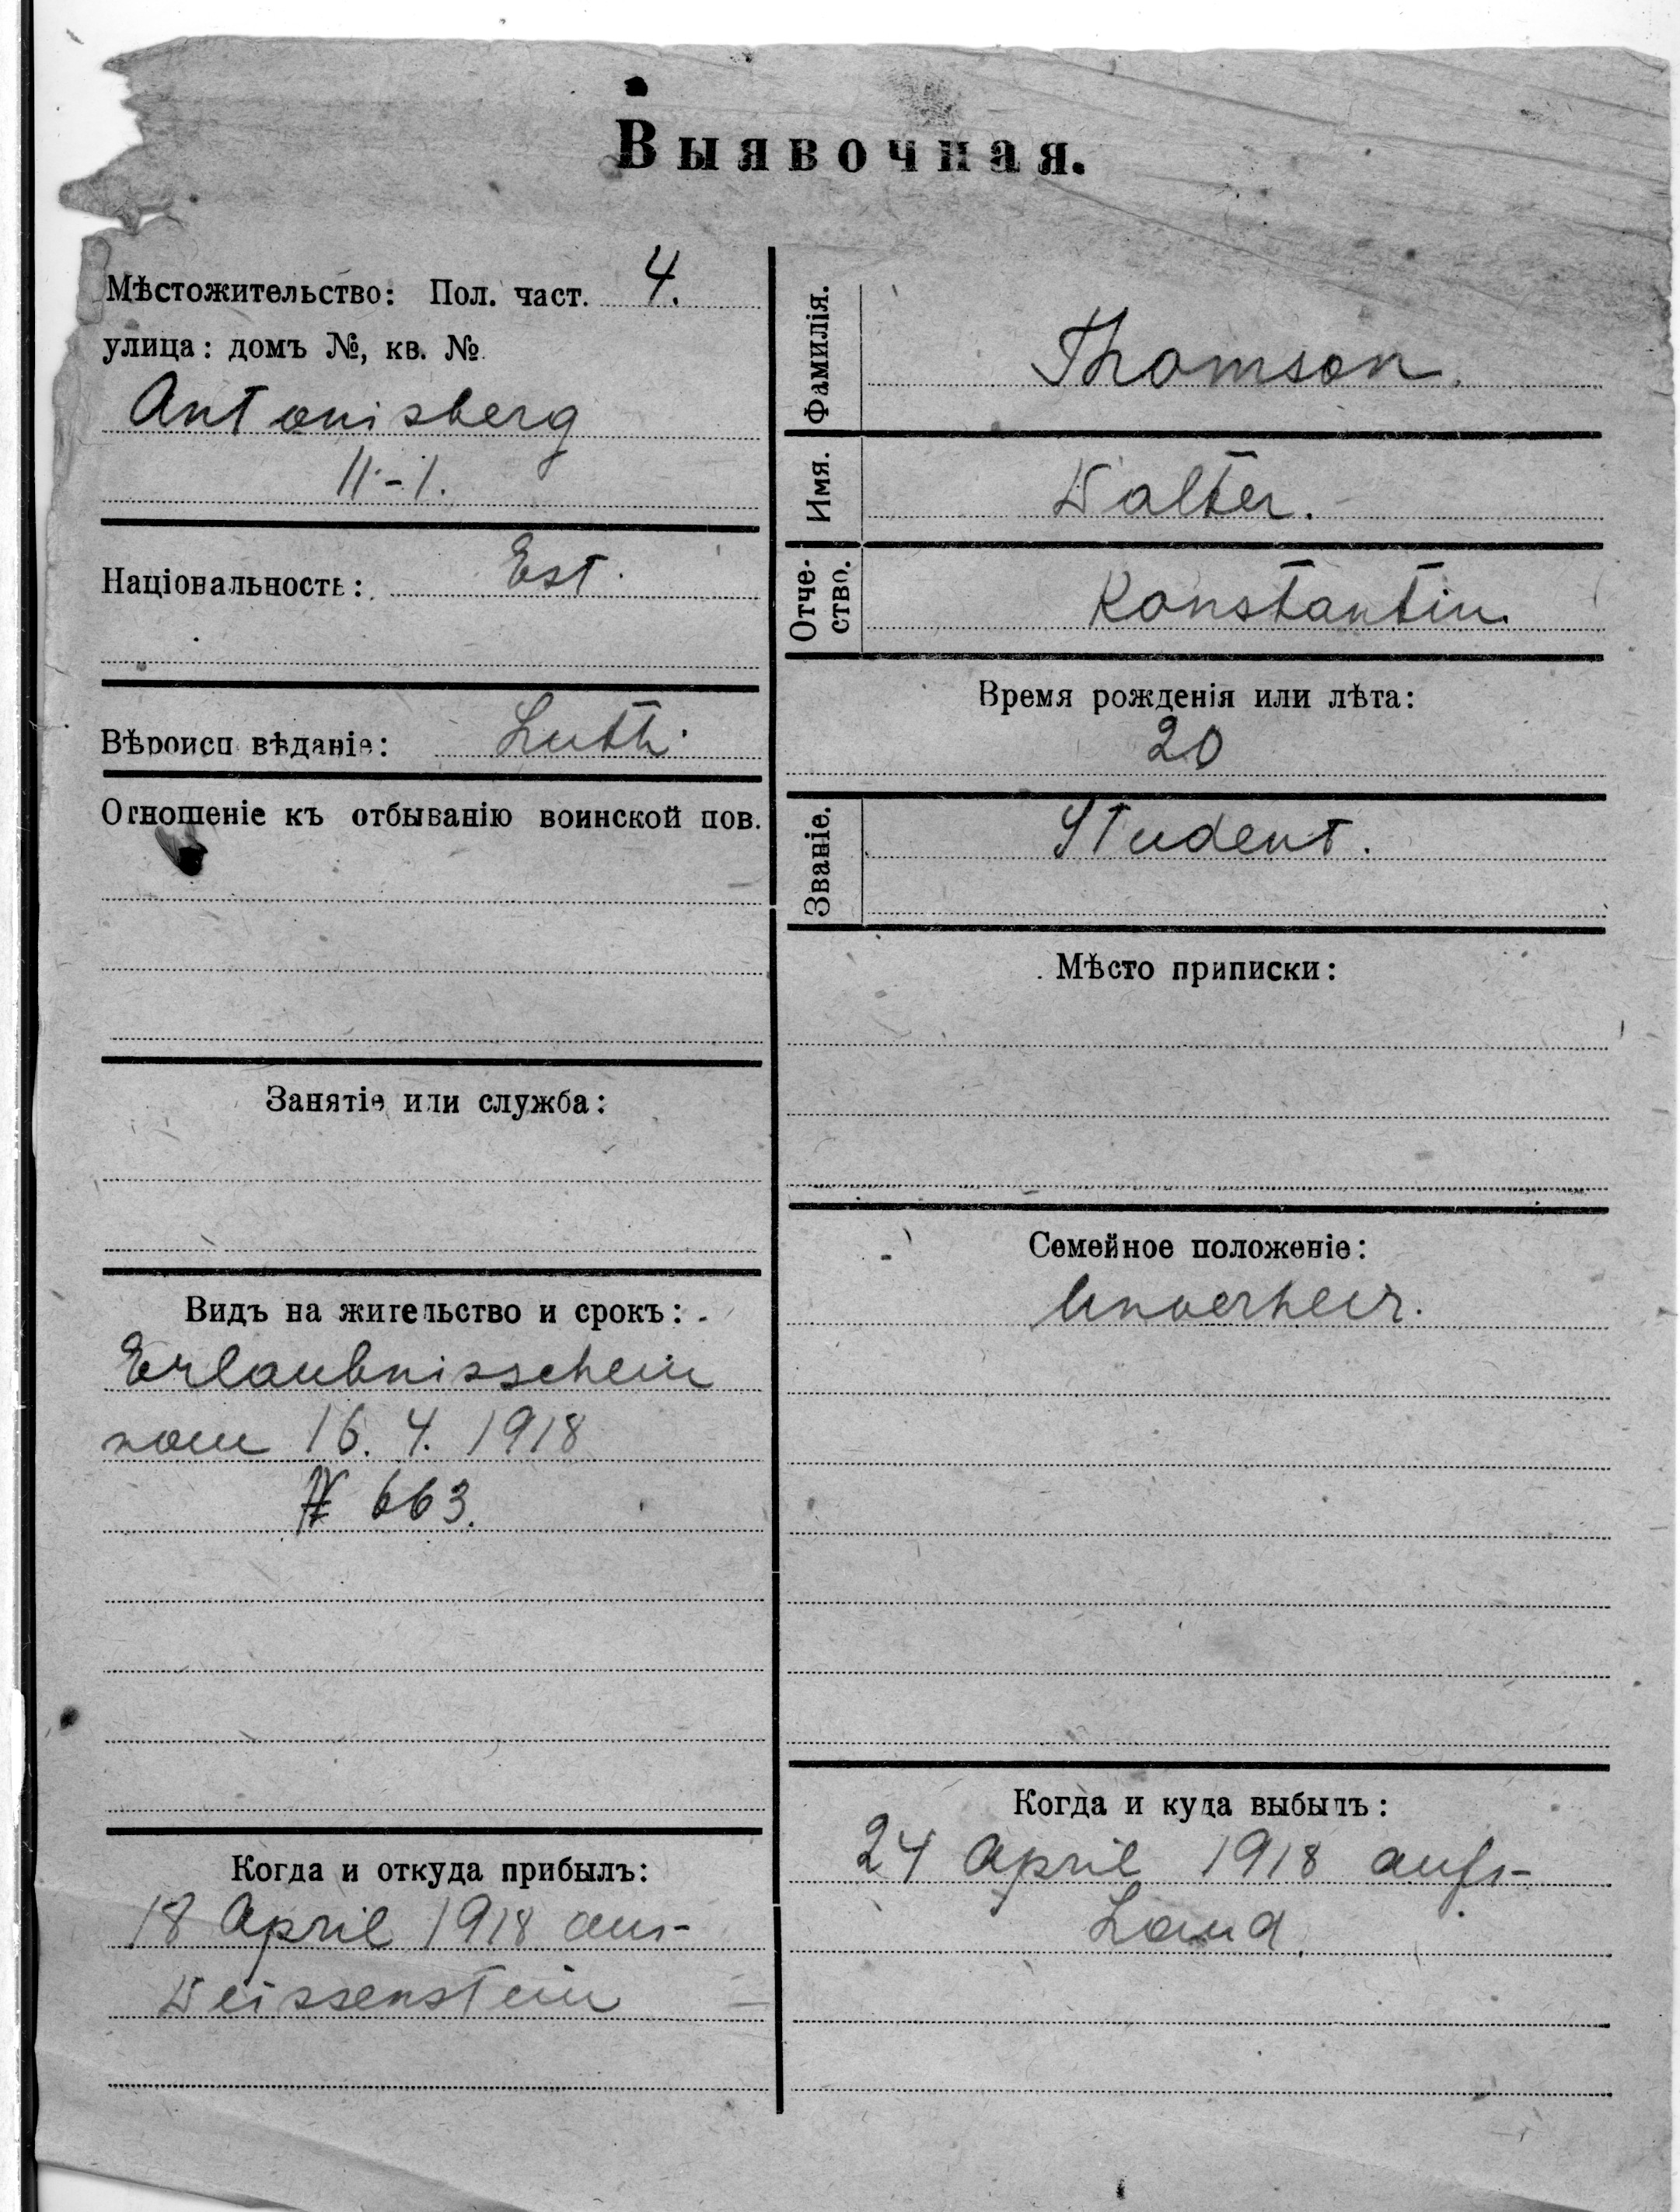 Выявочная.
Мѣстожительство: Пол. част. 4.
улица: домъ №, кв. №
Antonisberg
11-1.
Національность: Est.
Вѣроисп вѣданіе: Luth.
Отношеніе къ отбыванію воинской пов.
Занятіе или служба:
Видъ на жительство и срокъ:
Erlaubnisschein
vom 16. 4. 1918
№ 663.
Когда и откуда прибылъ:
18 April 1918 aus
Weissenstein
Фамилія. Thomson.
Имя. Walter.
Отче-
ство. Konstantin.
Время рожденія или лѣта:
20
Званіе. Student.
Мѣсто приписки:
Семейное положеніе:
Unverheir.
Когда и куда выбылъ:
24 April 1918 aufs
Land.